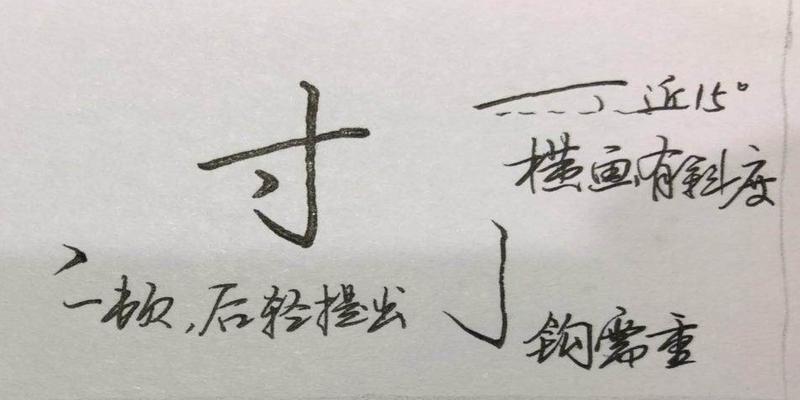 寸
近15°
横画有斜度
一顿,后轻提出
钩需重